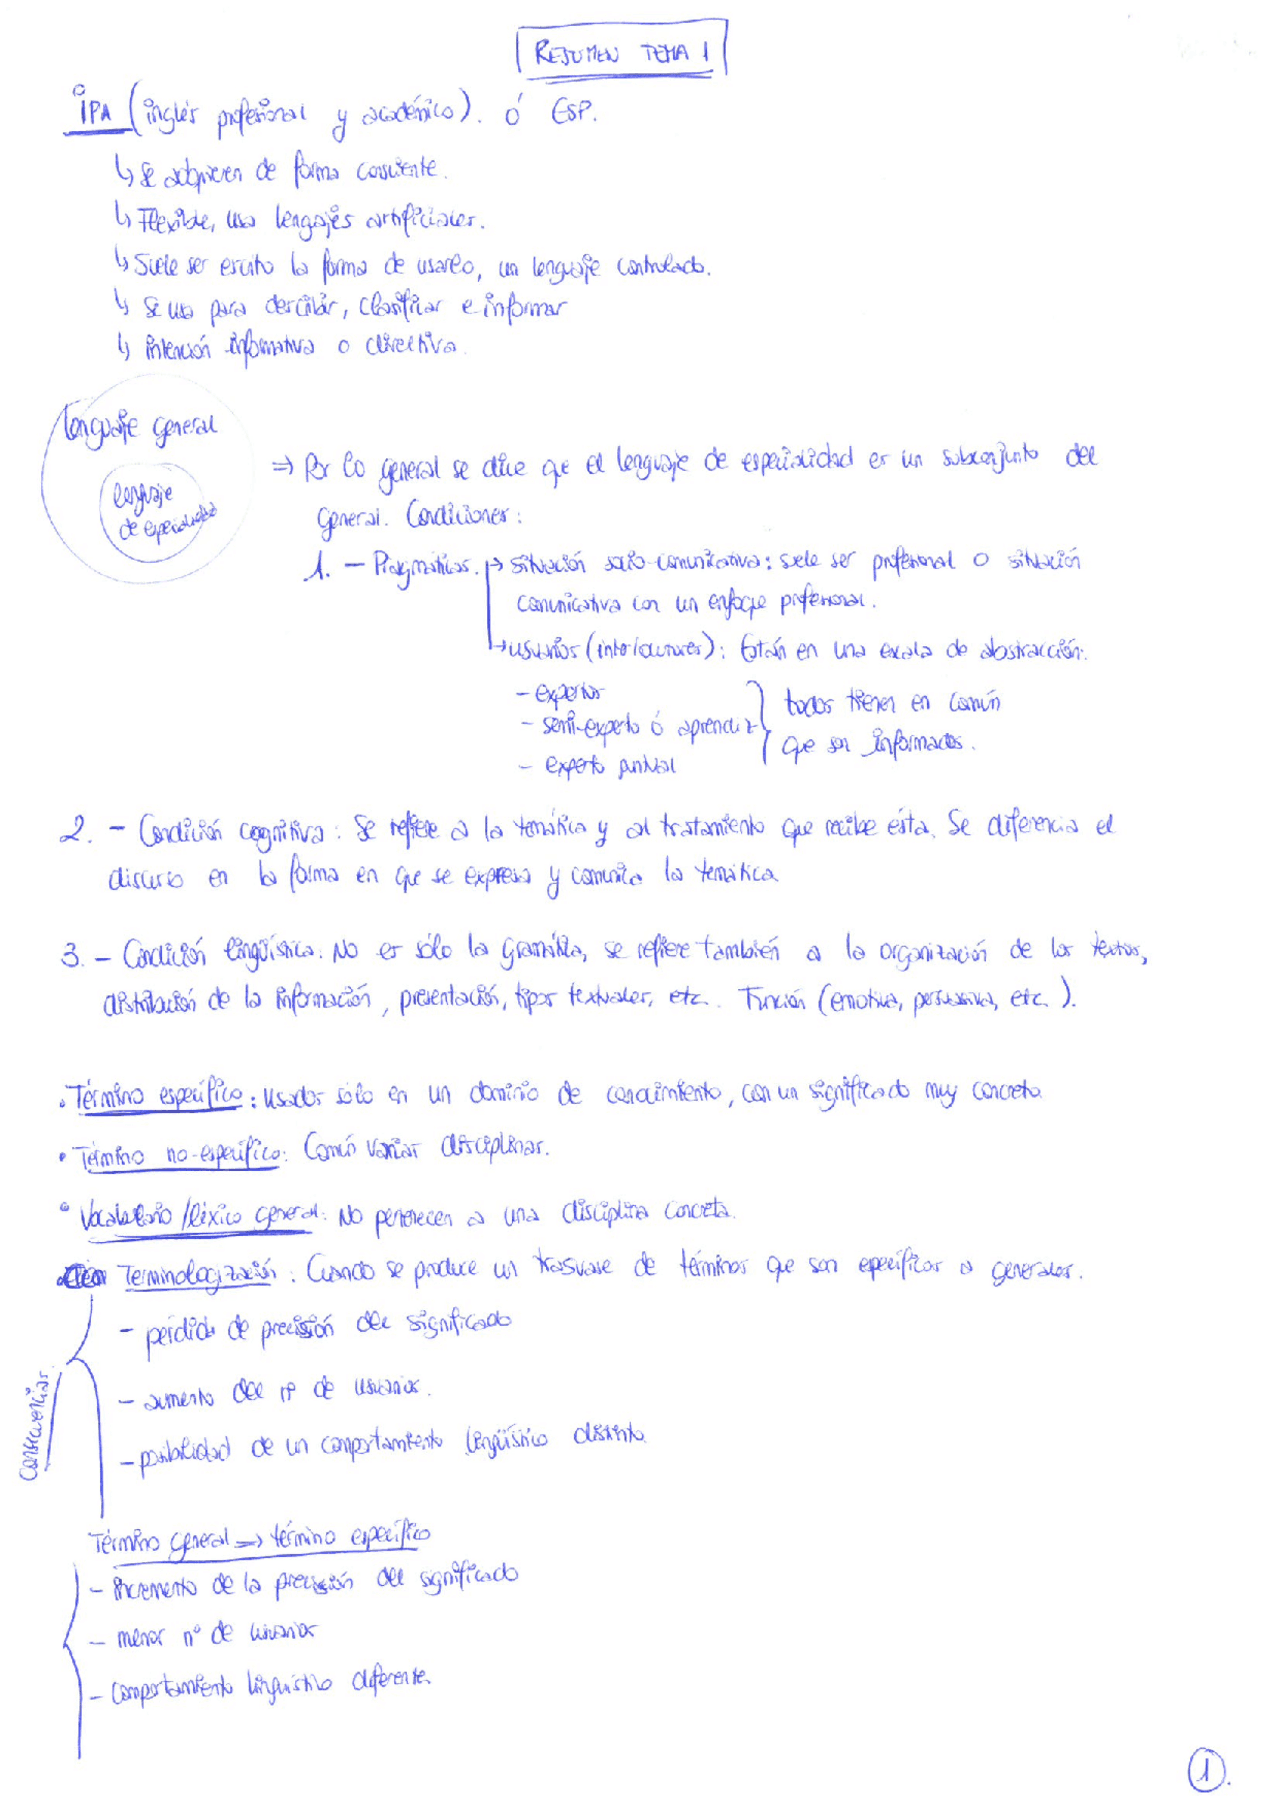 RESUMEN TEMA 1
IPA (inglés profesional y académico). ó ESP.
↳ Se adquieren de forma consciente.
↳ Flexible, usa lengajes artificiales.
↳ Suele ser escrito la forma de usarlo, un lenguaje controlado.
↳ Se usa para describir, clasificar e informar
↳ intención informativa o directiva.
lenguaje general
lenguaje
de especialidad
⇒ Por lo general se dice que el lenguaje de especialidad es un subconjunto del
general. Condiciones:
1. - Pragmáticas. → situación socio-comunicativa: suele ser profesional o situación
comunicativa con un enfoque profesional.
→ usuarios (interlocutores): Están en una escala de abstracción:
- expertos
- semi-experto ó aprendiz
- experto puntual
todos tienen en común
que son informados.
2. - Condición cognitiva: Se refiere a la temática y al tratamiento que recibe ésta. Se diferencia el
discurso en la forma en que se expresa y comunica la temática
3. - Condición lingüística. No es sólo la gramática, se refiere también a la organización de los textos,
distribución de la información, presentación, tipos textuales, etc. Función (emotiva, persuasiva, etc.).
• Término específico: Usados sólo en un dominio de conocimiento, con un significado muy concreto.
• Término no-específico: Común varias disciplinas.
• Vocabulario/léxico general: No pertenecen a una disciplina concreta.
• Terminologización: Cuando se produce un trasvase de términos que son específicos a generales.
Consecuencias.
- pérdida de precisión del significado
- aumento del nº de usuarios.
- posibilidad de un comportamiento lingüístico distinto.
Término general ⇒ término específico
- incremento de la precisión del significado
- menor nº de usuarios
- comportamiento lingüístico diferente.
1.